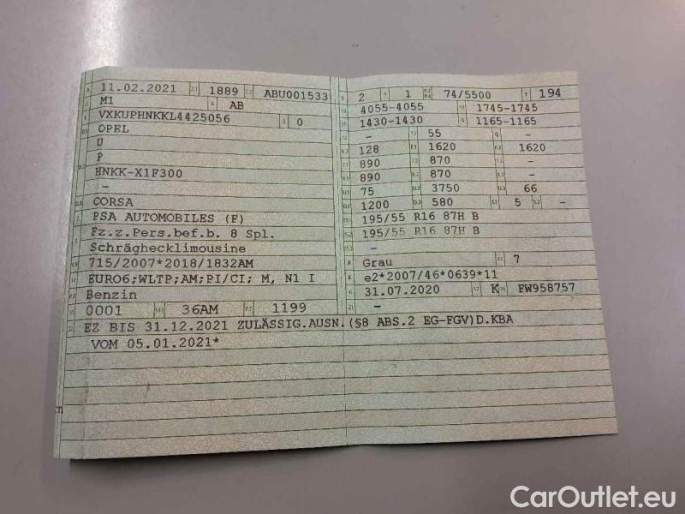 11.02.2021 1889 ABU001533
M1 AB
VXKUPHNKKL4425056 0
OPEL
U
P
HNKK-X1F300
-
CORSA
PSA AUTOMOBILES (F)
Fz.z.Pers.bef.b. 8 Spl.
Schräghecklimousine
715/2007*2018/1832AM
EURO6;WLTP;AM;PI/CI; M, N1 I
Benzin
0001 36AM 1199
2 1 74/5500 194
4055-4055 1745-1745
1430-1430 1165-1165
- 55 -
128 1620 1620
890 870 -
890 870 -
75 3750 66
1200 580 5 -
195/55 R16 87H B
195/55 R16 87H B
-
Grau 7
e2*2007/46*0639*11
31.07.2020 K FW958757
-
EZ BIS 31.12.2021 ZULÄSSIG.AUSN.(§8 ABS.2 EG-FGV)D.KBA
VOM 05.01.2021*
CarOutlet.eu